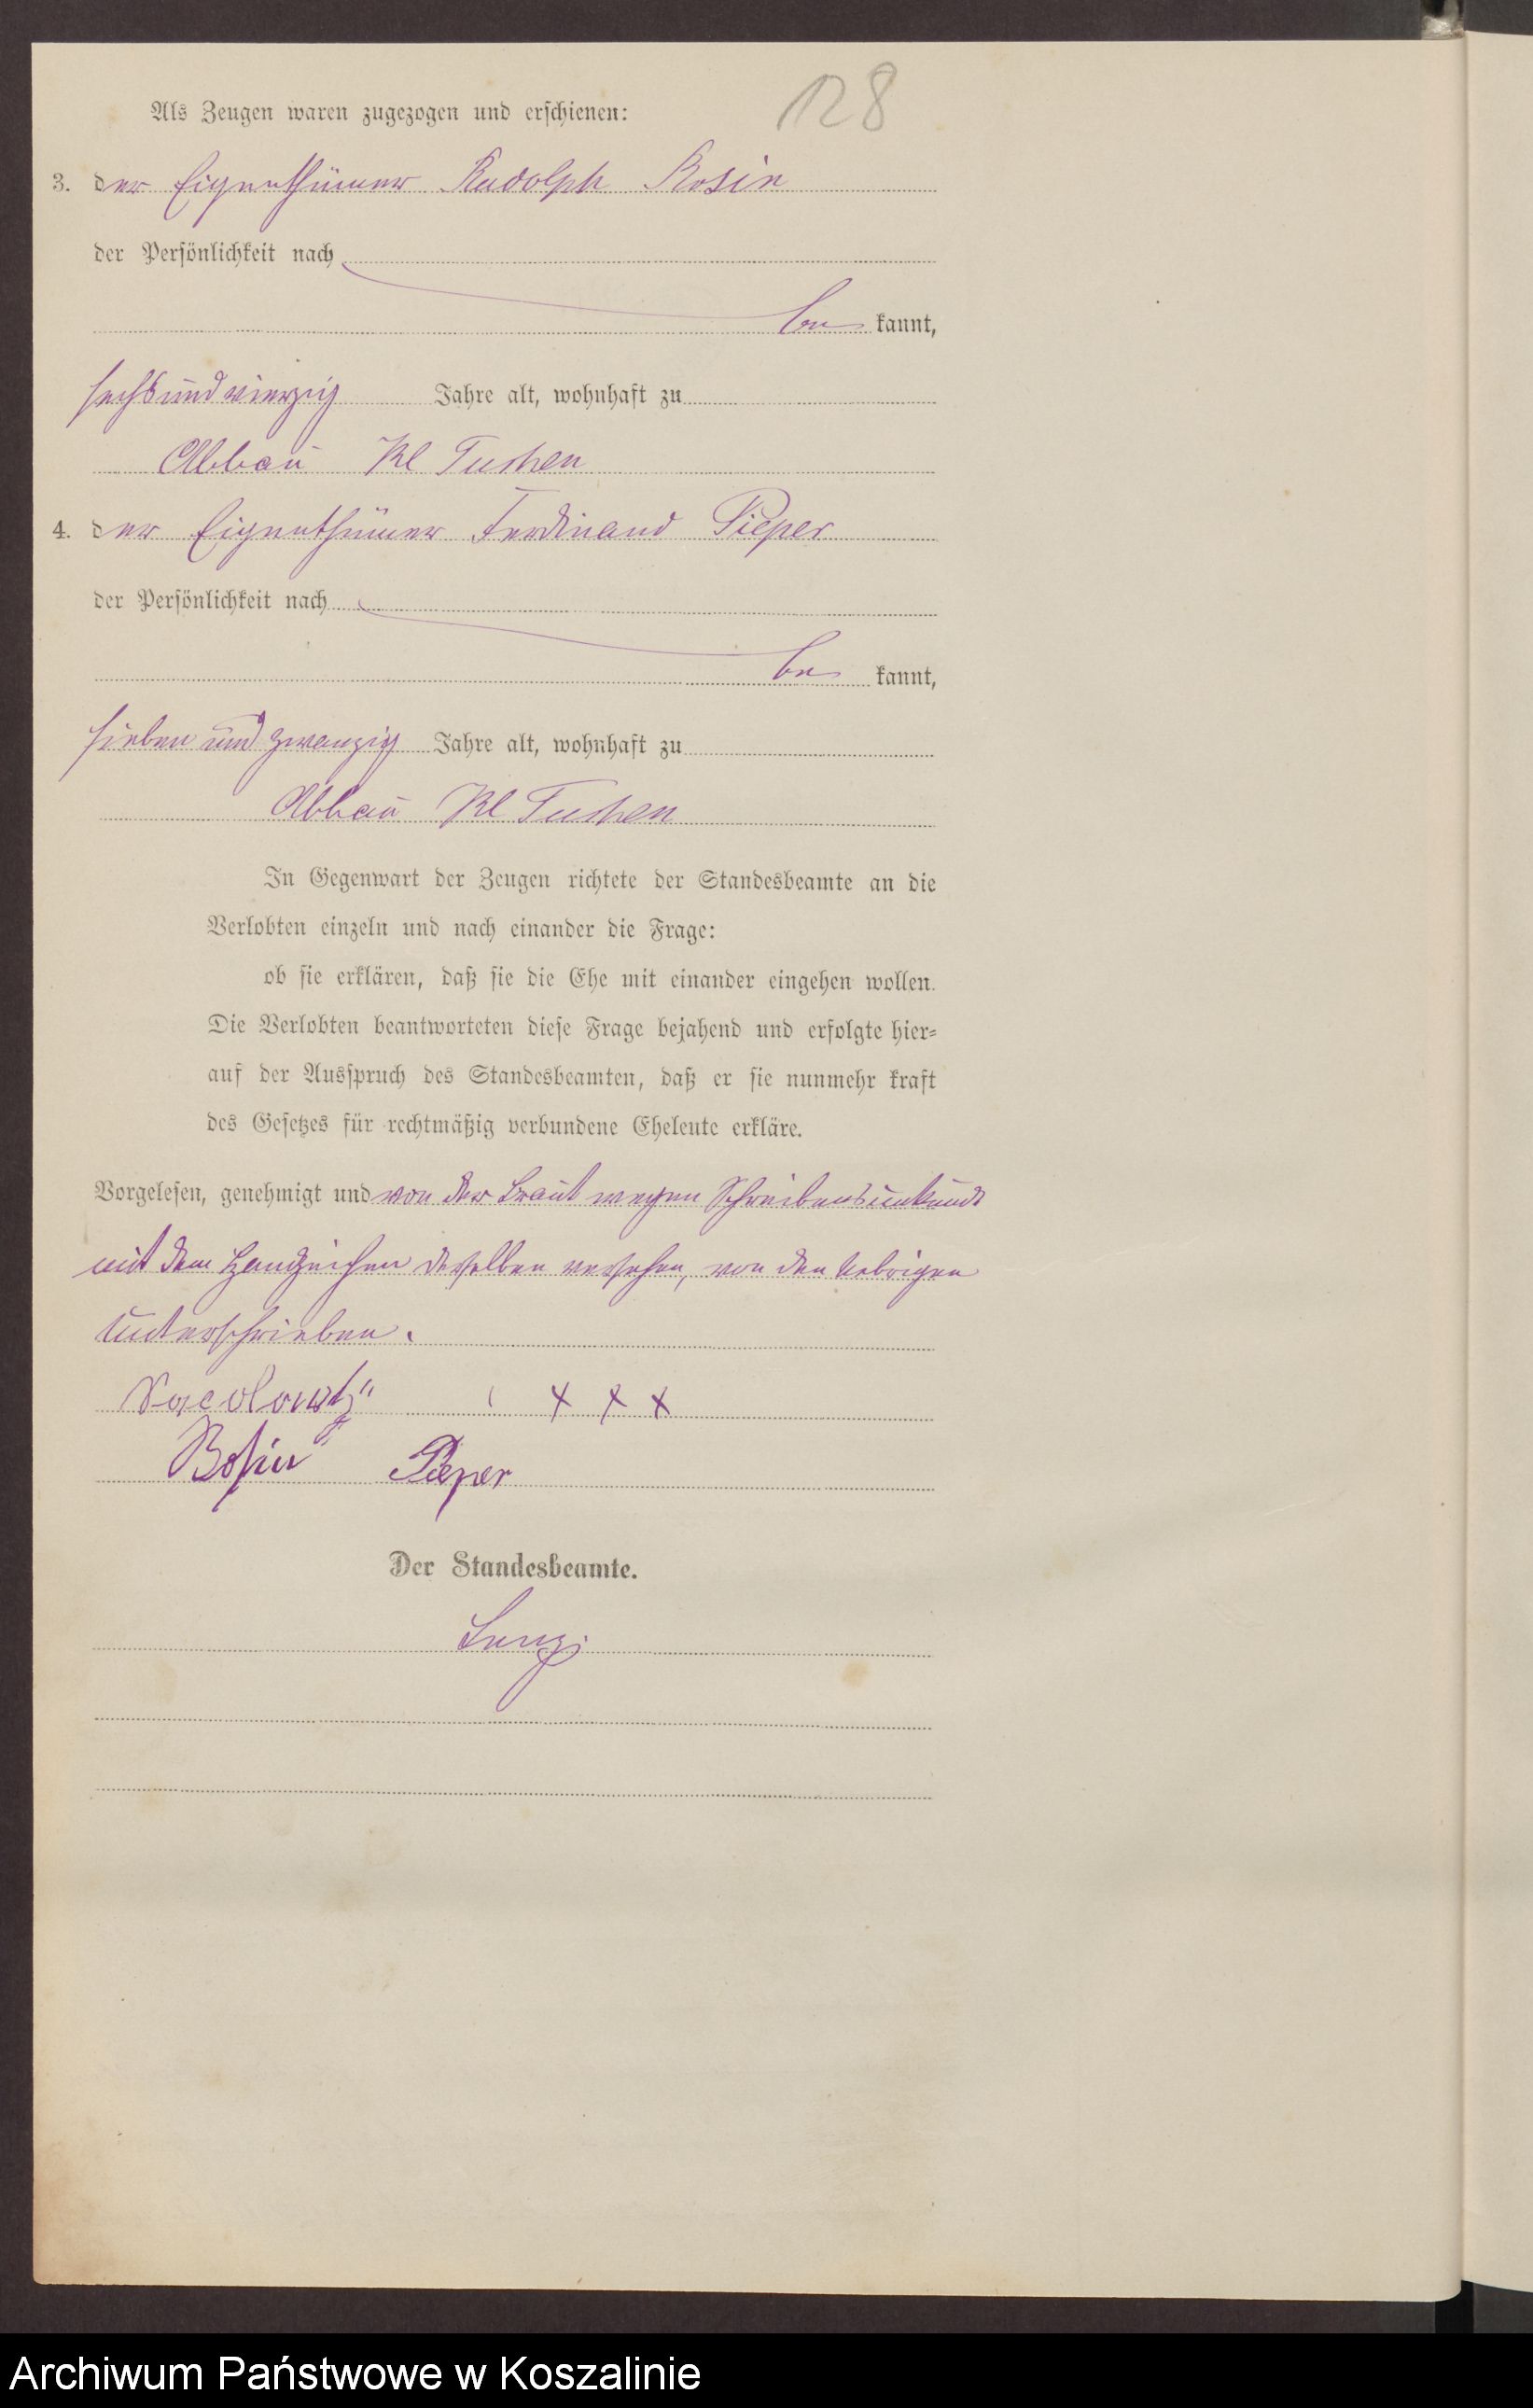 128
Als Zeugen waren zugezogen und erschienen:
3. der Eigenthümer Rudolph Rosin
der Persönlichkeit nach
be kannt,
sechsundvierzig Jahre alt, wohnhaft zu
Abbau Kl Tuchen
4. der Eigenthümer Ferdinand Pieper
der Persönlichkeit nach
be kannt,
sieben und zwanzig Jahre alt, wohnhaft zu
Abbau Kl Tuchen
In Gegenwart der Zeugen richtete der Standesbeamte an die
Verlobten einzeln und nach einander die Frage:
ob sie erklären, daß sie die Ehe mit einander eingehen wollen.
Die Verlobten beantworteten diese Frage bejahend und erfolgte hier-
auf der Ausspruch des Standesbeamten, daß er sie nunmehr kraft
des Gesetzes für rechtmäßig verbundene Eheleute erkläre.
Vorgelesen, genehmigt und von der Braut wegen Schreibensunkunde
mit dem Handzeichen derselben versehen, von den Uebrigen
unterschrieben.
+ + +
Rosin Pieper
Der Standesbeamte.
Archiwum Państwowe w Koszalinie